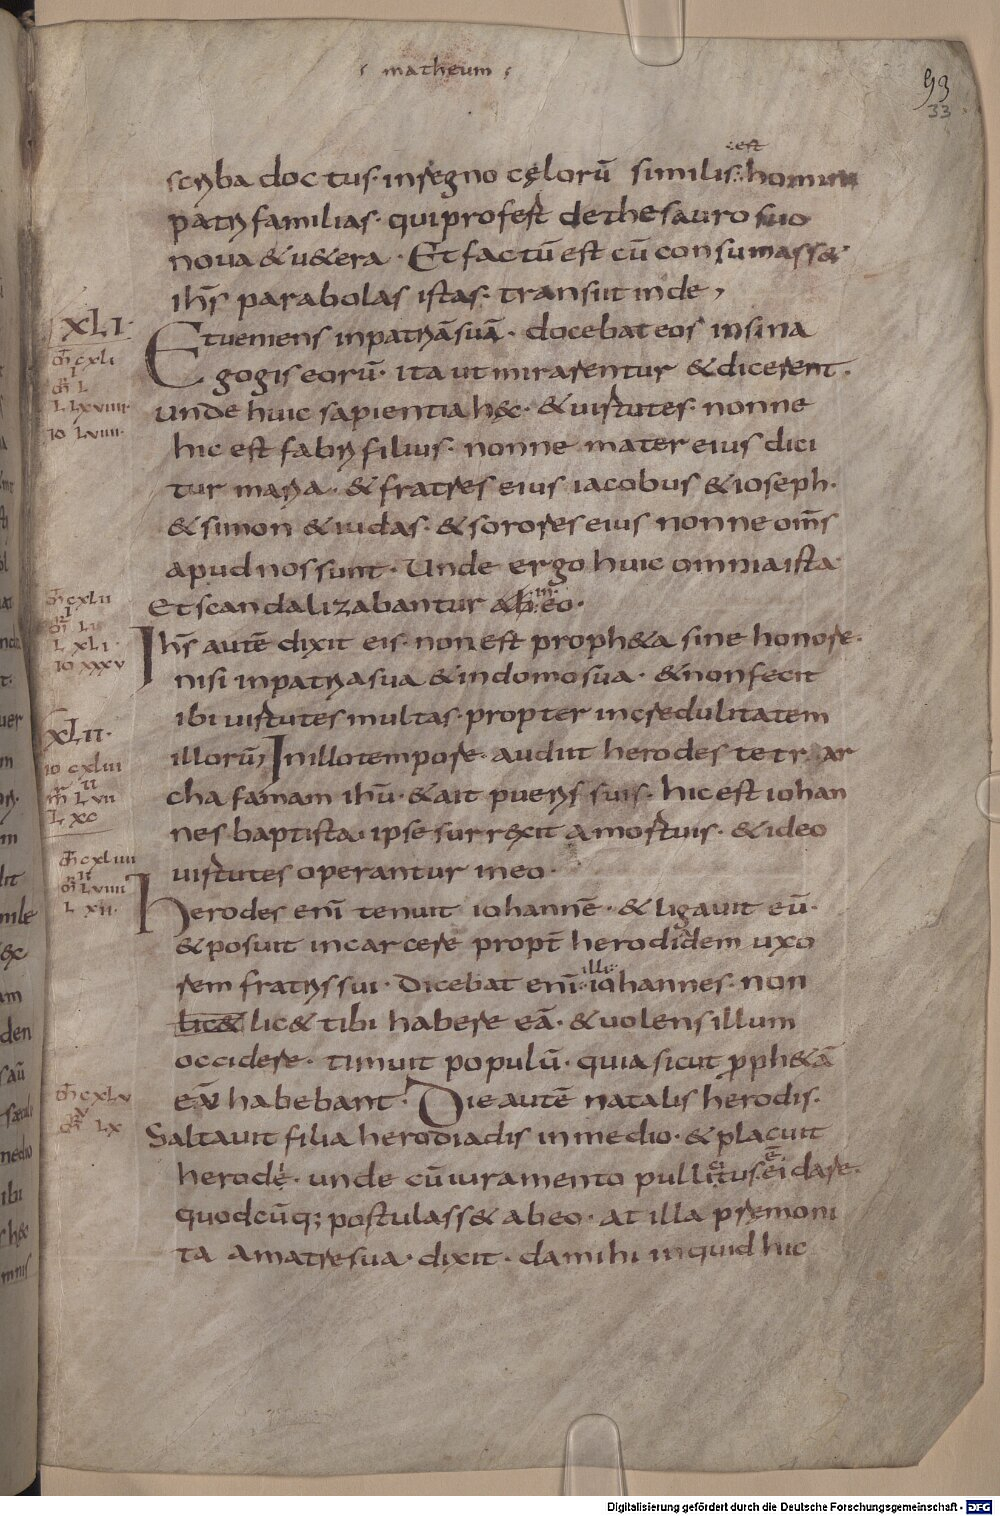 matheum
93
33
scriba doctus· in regno cęlorū similis ÷est homini
patri familias· qui profert de thesauro suo
noua & u&era · Et factū est cū consumass&
ihs̄ parabolas istas· transiit inde,
XLI·
Et ueniens in patriā suā · docebat eos in sina
m̄ cxli
gogis eorū· ita ut mirarentur & dicerent·
I
m̄r L
L Lxviiii·
unde huic sapientia h&c· & uirtutes· nonne
io Lviiii·
hic est fabri filius· nonne mater eius dici
tur maria · & fratres eius iacobus & ioseph·
& simon & iudas· & sorores eius nonne om̄s
apud nos sunt · Unde ergo huic omnia ista
m̄ cxlii
I
Et scandalizabantur ab in eo·
m̄r Li
L xLi·
Ihs̄ autē dixit eis· non est proph&a sine honore·
io xxxv
nisi in patria sua & in domo sua · & non fecit
ibi uirtutes multas· propter incredulitatem
XLII·
illorū, In illo tempore· audiit herodes tetr ar
io cxliii
II
cha famam ihū· & ait pueris suis· hic est iohan
m̄ Lvii
L xc
nes baptista· ipse surrexit a mortuis· & ideo
m̄ cxliiii
II
uirtutes operantur in eo·
m̄r Lviiii
L xii·
herodes enī tenuit iohannē · & ligauit eū·
& posuit in carcere propt̄ herodidem uxo
rem fratris sui · Dicebat enī· illi· iohannes· non
lic& lic& tibi habere eā · & uolens illum
occidere· timuit populū· quia sicut p̱ph&ā
m̄ cxlv
V
eū habebant· Die autē natalis herodis·
m̄r Lx
Saltauit filia herodiadis in medio· & placuit
herodę· unde cū iuramento pullitus· ē ei dare·
quodcūq; postulass& ab eo · at illa premoni
ta a matre sua · dixit · da mihi inquid hic
Digitalisierung gefördert durch die Deutsche Forschungsgemeinschaft - DFG